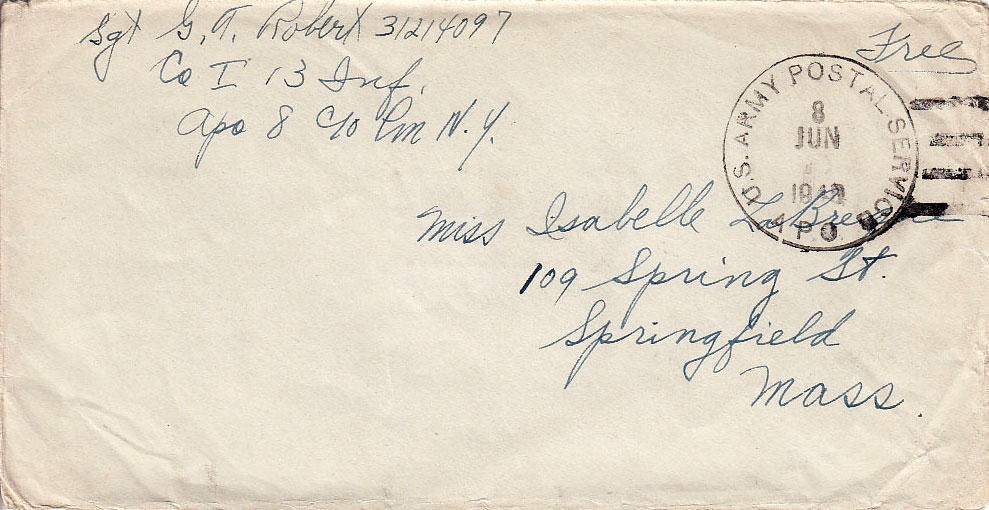 Sgt G. T. Robert 31214097
Co I 13 Inf.
Apo 8 c/o Pm N.Y.
Free
U.S. ARMY POSTAL SERVICE
8
JUN
A.P.O.
Miss Isabelle
109 Spring St.
Springfield
Mass.